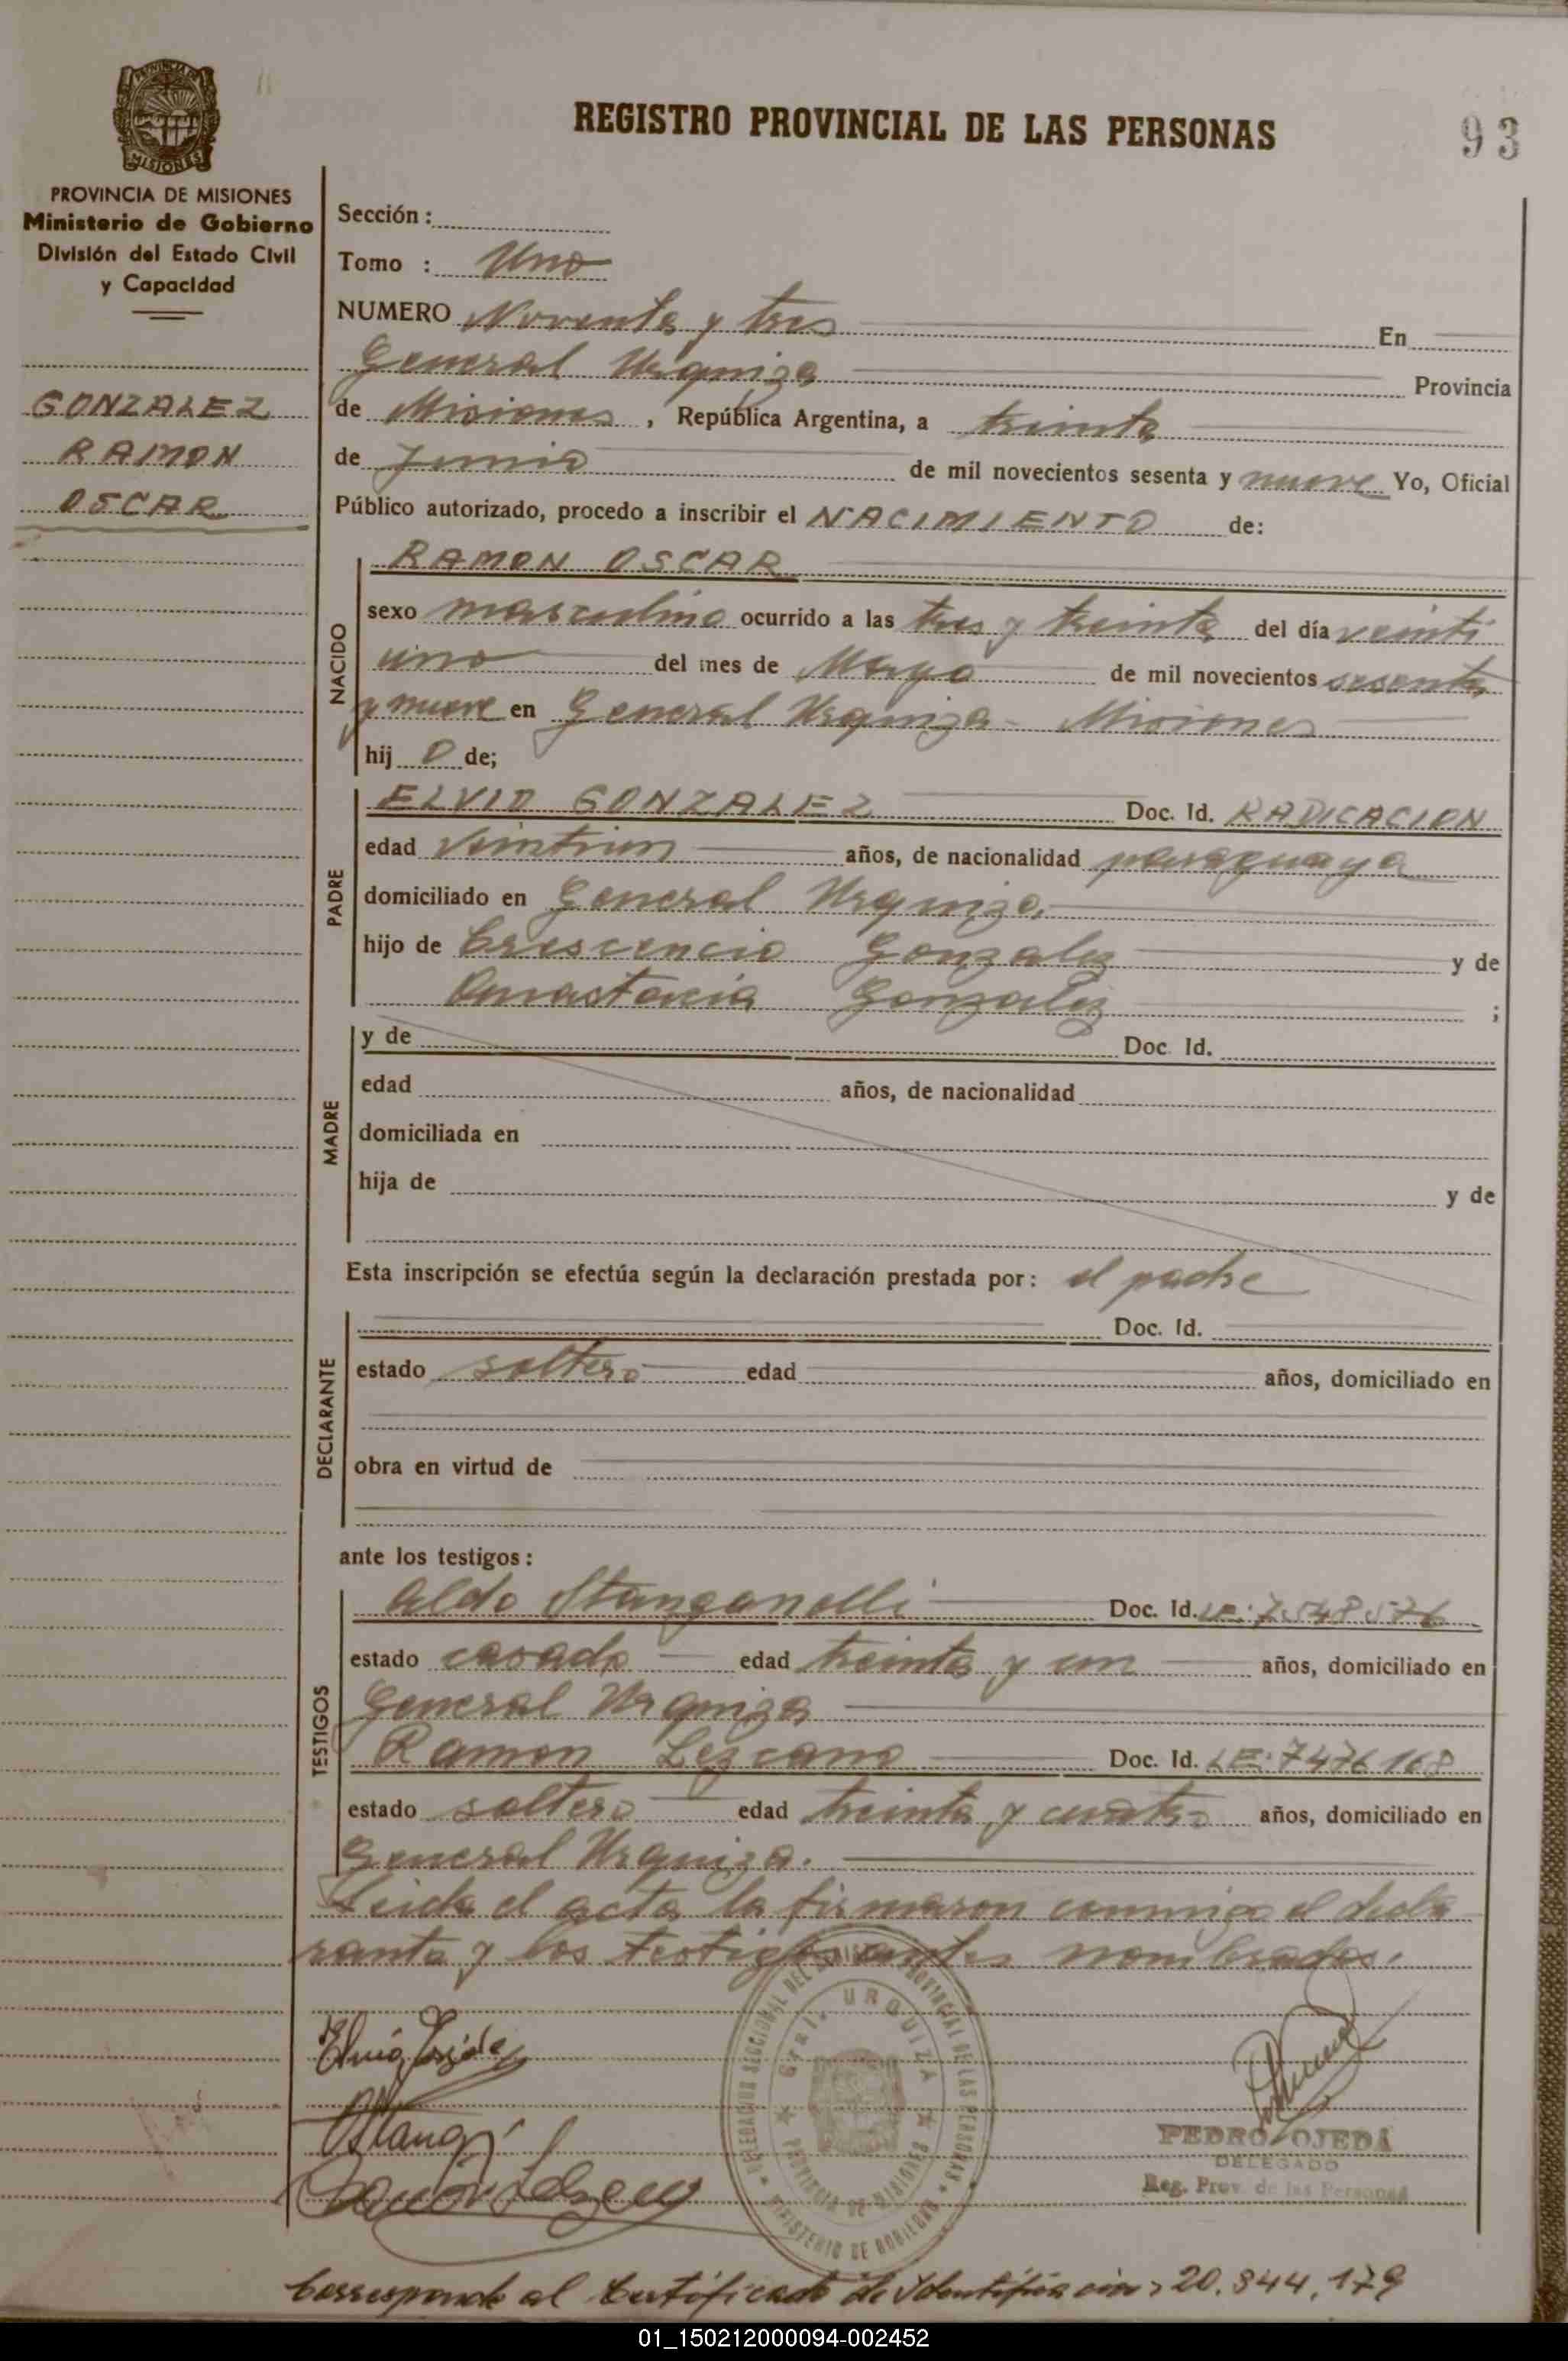 PROVINCIA DE MISIONES
REGISTRO PROVINCIAL DE LAS PERSONAS
93
PROVINCIA DE MISIONES
Ministerio de Gobierno
División del Estado Civil
y Capacidad
GONZALEZ
RAMON
OSCAR
Sección :
Tomo : Uno
NUMERO Noventa y tres En
General Urquiza Provincia
de Misiones , República Argentina, a treinta
de Junio de mil novecientos sesenta y nueve Yo, Oficial
Público autorizado, procedo a inscribir el NACIMIENTO de:
NACIDO
RAMON OSCAR
sexo masculino ocurrido a las tres y treinta del día veinti
uno del mes de Mayo de mil novecientos sesenta
y nueve en General Urquiza - Misiones
hij o de;
PADRE
ELVIO GONZALEZ Doc. Id. RADICACION
edad años, de nacionalidad paraguaya
domiciliado en General Urquiza.
hijo de Crescencio Gonzalez y de
Anastacia Gonzalez ;
MADRE
y de Doc. Id.
edad años, de nacionalidad
domiciliada en
hija de y de
Esta inscripción se efectúa según la declaración prestada por: el padre
DECLARANTE
Doc. Id.
estado soltero edad años, domiciliado en
obra en virtud de
ante los testigos :
TESTIGOS
Aldo Stanganelli Doc. Id. LE: 7.548.576
estado casado edad treinta y un años, domiciliado en
General Urquiza
Ramon Lezcano Doc. Id. LE: 7476168
estado soltero edad treinta y cuatro años, domiciliado en
General Urquiza.
Leida el acta la firmaron conmigo el decla
rante y los testigos antes nombrados.
DELEGACION SECCIONAL DEL REGISTRO PROVINCIAL DE LAS PERSONAS
GRAL. URQUIZA
PROVINCIA DE MISIONES
MINISTERIO DE GOBIERNO
PEDRO OJEDA
DELEGADO
Reg. Prov. de las Personas
Corresponde al Certificado de Identificacion 20.844.179
01_150212000094-002452